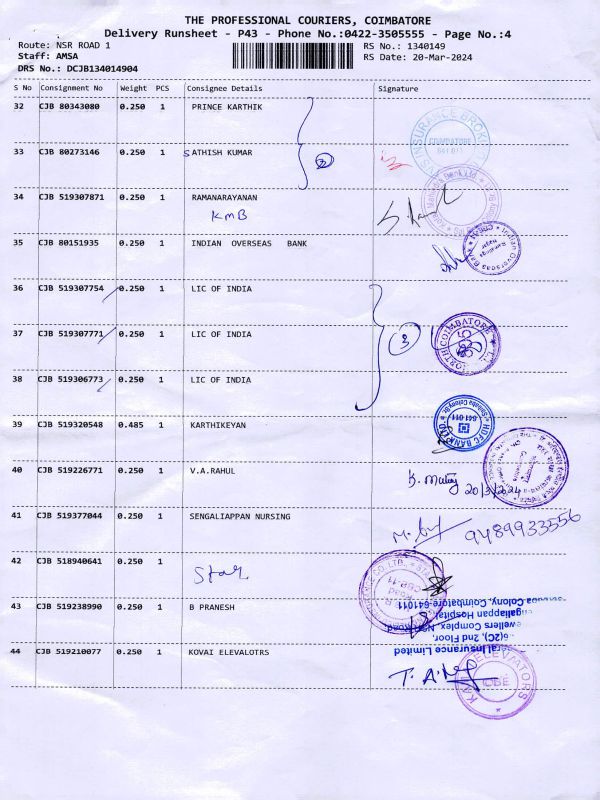 THE PROFESSIONAL COURIERS, COIMBATORE
Delivery Runsheet - P43 - Phone No.:0422-3505555 - Page No.:4
Route: NSR ROAD 1 RS No.: 1340149
Staff: AMSA RS Date: 20-Mar-2024
DRS No.: DCJB134014904
S No Consignment No Weight PCS Consignee Details Signature
32 CJB 80343080 0.250 1 PRINCE KARTHIK
33 CJB 80273146 0.250 1 SATHISH KUMAR
34 CJB 519307871 0.250 1 RAMANARAYANAN
KMB
35 CJB 80151935 0.250 1 INDIAN OVERSEAS BANK
36 CJB 519307754 0.250 1 LIC OF INDIA
37 CJB 519307771 0.250 1 LIC OF INDIA
3
38 CJB 519306773 0.250 1 LIC OF INDIA
39 CJB 519320548 0.485 1 KARTHIKEYAN
HDFC BANK LTD
641 011
40 CJB 519226771 0.250 1 V.A.RAHUL
20/3/2024
41 CJB 519377044 0.250 1 SENGALIAPPAN NURSING
9489933556
42 CJB 518940641 0.250 1
Star
43 CJB 519238990 0.250 1 B PRANESH
Colony, Coimbatore-641011
6(2C), 2nd Floor,
Insurance Limited
44 CJB 519210077 0.250 1 KOVAI ELEVALOTRS
ELEVATORS
CBE